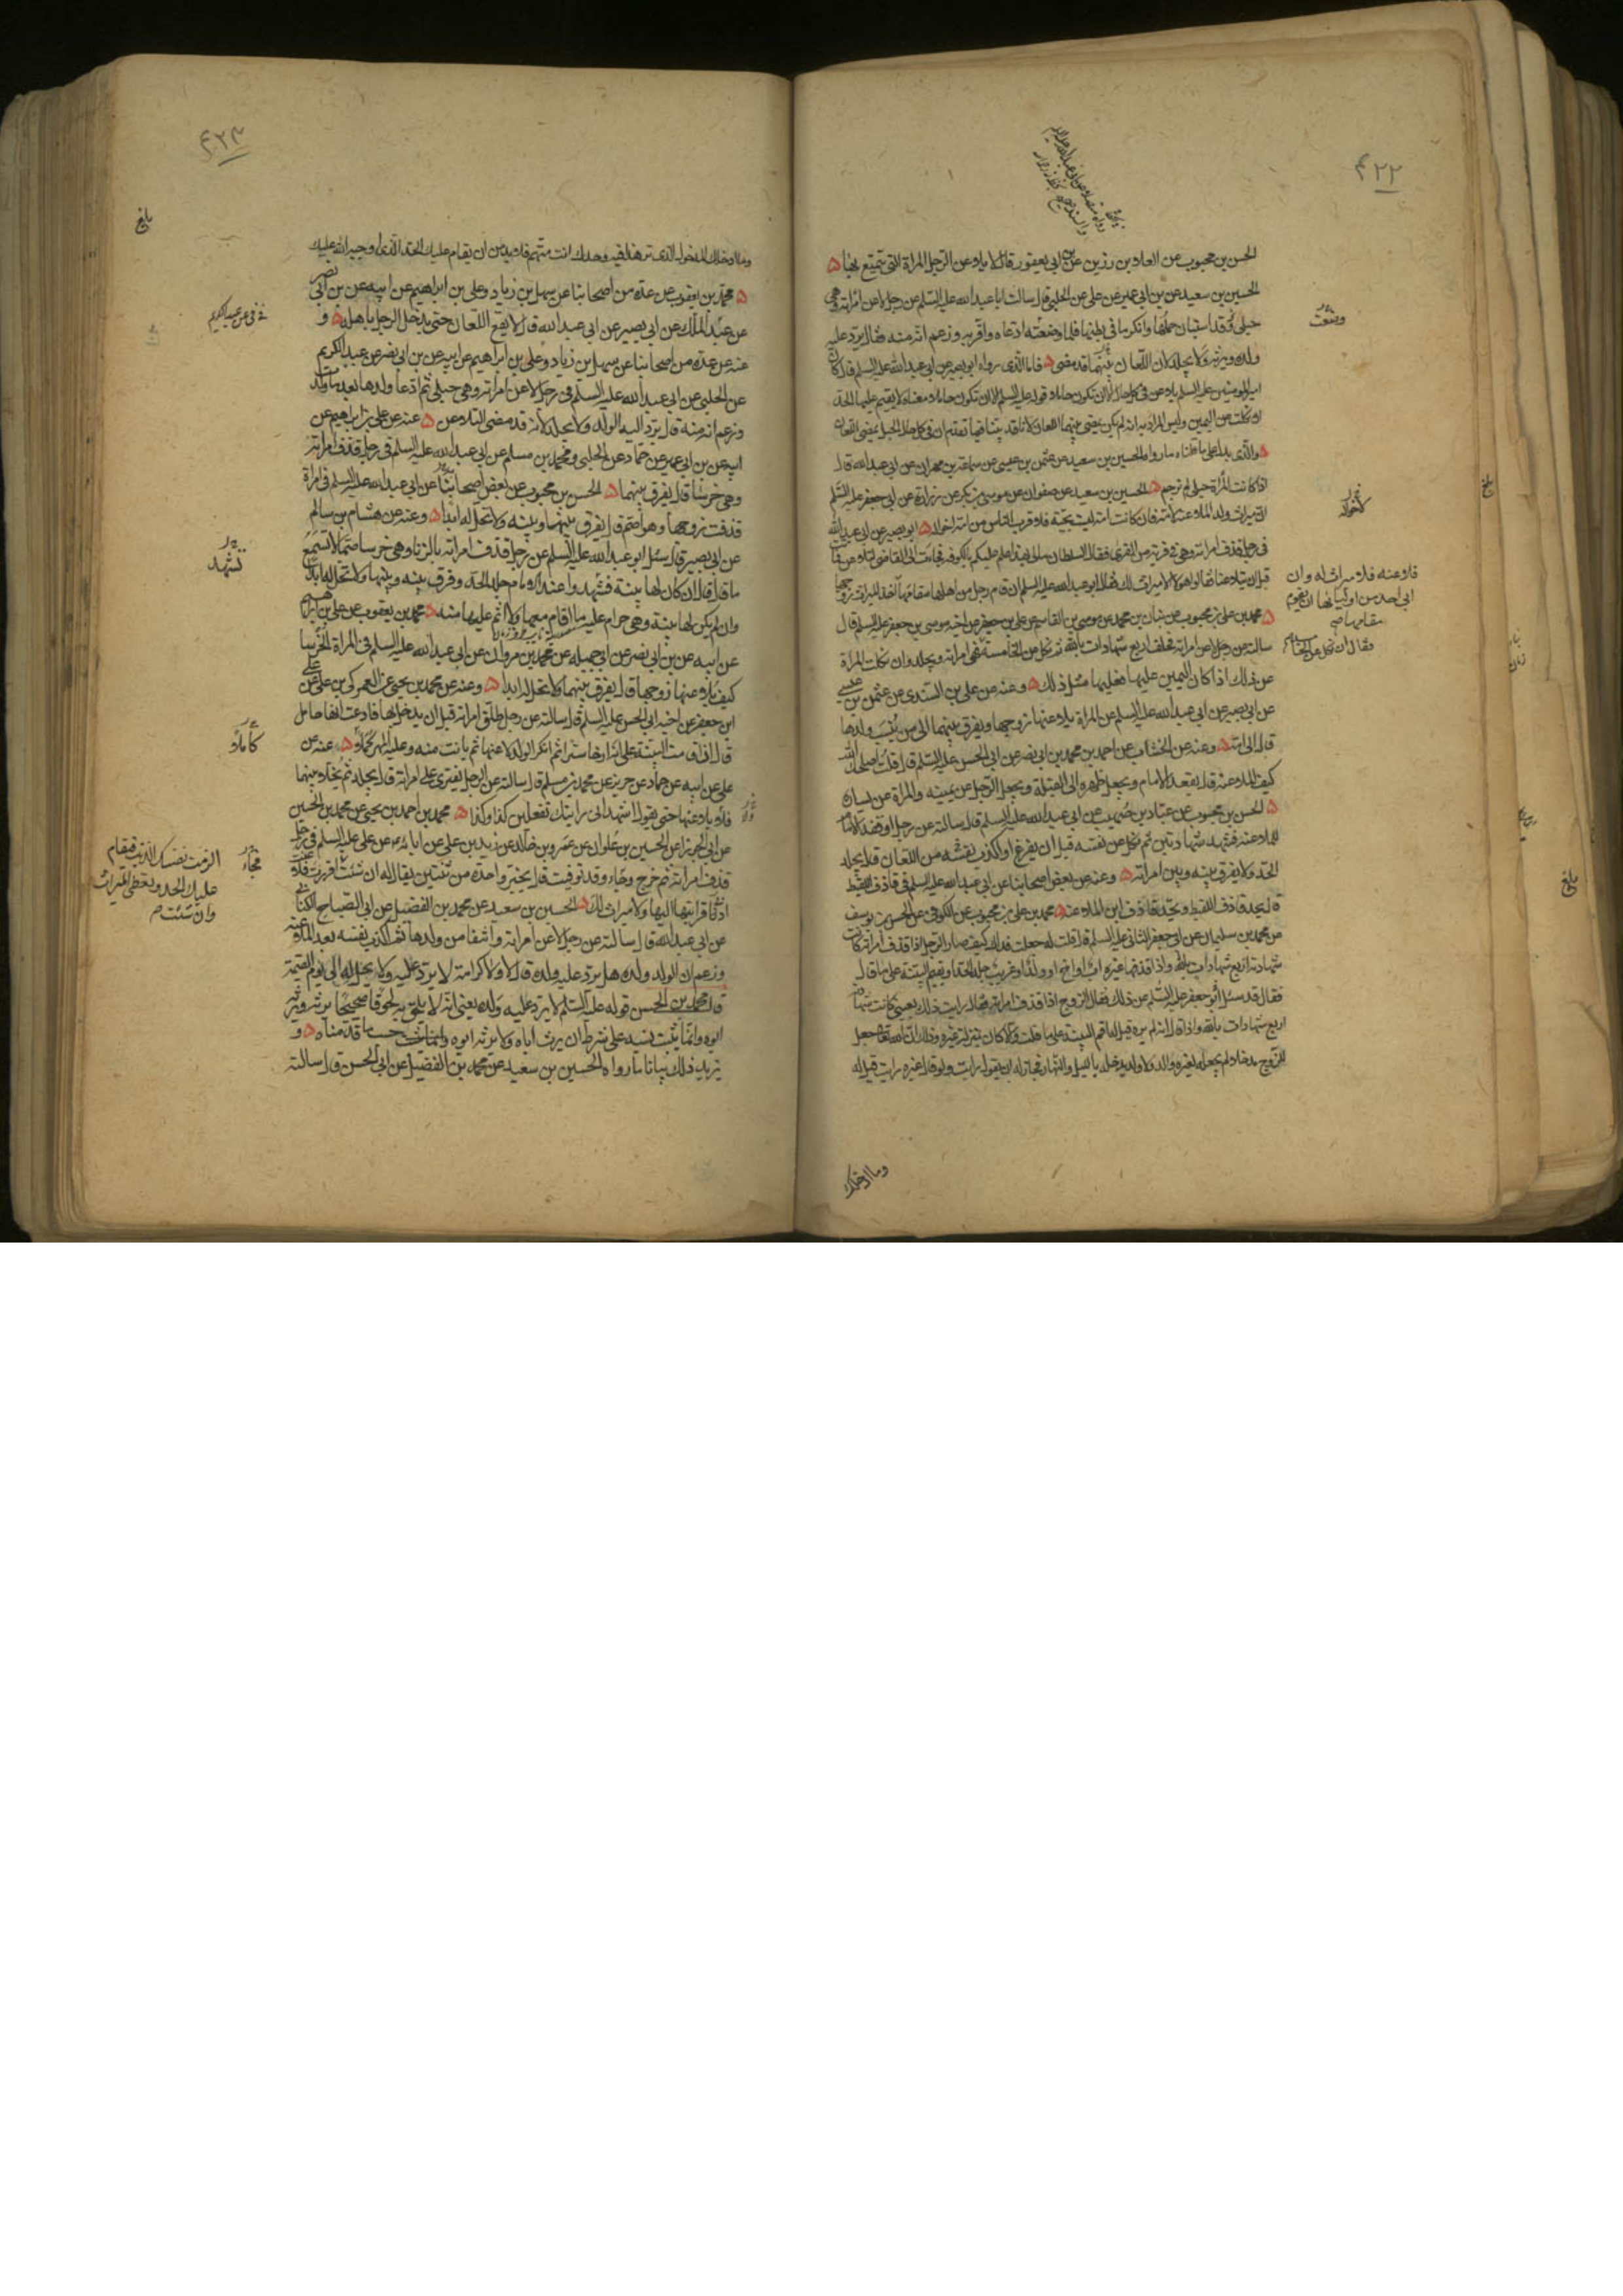 ٤٢٢
الحسن بن محبوب عن العلا بن رزين عن ابن ابي يعفور قال لا يلاعن الرجل المراة التي يتمتع بها
الحسين بن سعيد عن بن ابي عمير عن علي عن الحلبي قال سالت ابا عبد الله عليه السلم عن رجل لاعن امراته وهي
حبلى قد استبان حملها وانكر ما في بطنها فلما وضعته ادعاه واقر به وزعم انه منه فقال يرد عليه
ولده ويرثه ولا يجلد لان اللعان بينهما قد مضى فاما الذي رواه ابو بصير عن ابي عبد الله عليه السلم قال كان
امير المومنين عليه السلم يلاعن في كل حال الا ان تكون حاملا قوله عليه السلم الا ان تكون حاملا معناه لا يقيم عليها الحد
والذي يدل على ما قلناه ما رواه الحسين بن سعيد عن عثمن بن عيسى عن سماعة بن مهران عن ابي عبد الله قال
اذا كانت المرأة حبلى لم ترجم الحسين بن سعيد عن صفوان عن موسى بن بكر عن زرارة عن ابي جعفر عليه السلم
ان ميراث ولد الملاعنة لامه فان كانت امه ليست بحية فلاقرب الناس من امه اخواله ابو بصير عن ابي عبد الله
في رجل قذف امراته وهي في قرية من القرى فقال السلطان مالي بهذا علم عليكم بالكوفة فجاءت الى القاضي لتلاعن فماتت
قبل ان يتلاعنا فقالوا هولاء لا ميراث لك فقال ابو عبد الله عليه السلم ان قام رجل من اهلها مقامها اخذ الميراث زوجها
محمد بن علي بن محبوب عن بنان بن محمد عن موسى بن القاسم عن علي بن جعفر عن اخيه موسى بن جعفر عليه السلم قال
سالته عن رجل لاعن امراته فحلف اربع شهادات بالله ثم نكل عن الخامسة فهي امراته ويجلد وان نكلت المرأة
عن ذلك اذا كان اليمين عليها فعليها مثل ذلك وعنه عن علي بن السندي عن عثمن بن عيسى
عن ابي بصير عن ابي عبد الله عليه السلم عن المراة يلاعنها زوجها ويفرق بينهما الى من ينسب ولدها
قال الى امه وعنه عن الخشاب عن احمد بن محمد بن ابي نصر عن ابي الحسن عليه السلم قال قلت اصلحك الله
كيف الملاعنة قال يقعد الامام ويجعل ظهره الى القبلة ويجعل الرجل عن يمينه والمراة عن يساره
الحسن بن محبوب عن عباد بن صهيب عن ابي عبد الله عليه السلم قال سالته عن رجل اوقفه الامام
للملاعنة فشهد شهادتين ثم نكل عن نفسه قبل ان يفرغ او اكذب نفسه من اللعان قال يجلد
الحد ولا يفرق بينه وبين امراته وعنه عن بعض اصحابنا عن ابي عبد الله عليه السلم في قاذف اللقيط
قال يحد قاذف اللقيط ويحد قاذف ابن الملاعنة محمد بن علي بن محبوب عن الكوفي عن الحسن بن يوسف
عن محمد بن سليمان عن ابي جعفر الثاني عليه السلم قال قلت له جعلت فداك كيف صار الرجل اذا قذف امراته كانت
شهادته اربع شهادات بالله واذا قذفها غيره اب او اخ او ولد او غريب جلد الحد او يقيم البينة على ما قال
فقال قد سئل ابو جعفر عليه السلم عن ذلك فقال ان الزوج اذا قذف امراته فقال رايت ذلك بعيني كانت شهادته
اربع شهادات بالله واذا قال انه لم يره قيل له اقم البينة على ما قلت والا كان بمنزلة غيره وذلك ان الله تعالى جعل
للزوج مدخلا لم يجعله لغيره والد ولا ولد يدخله بالليل والنهار فجاز له ان يقول رايت ولو قال غيره رايت قيل له
وضعت
لاخواله
فلاعنه فلا ميراث له وان
ابى احد من اوليائها ان يقوم
مقامها
فقال ان نكل عن الخامسة
بلغ
وما ادخلك
٤٢٣
بلغ
وما ادخلك المدخل الذي ترى هذا فيه وحدك انت متهم فلا بد من ان يقام عليك الحد الذي اوجبه الله عليك
محمد بن يعقوب عن عدة من اصحابنا عن سهل بن زياد وعلي بن ابراهيم عن ابيه عن بن ابي نصر
عن عبد الملك عن ابي بصير عن ابي عبد الله قال لا يقع اللعان حتى يدخل الرجل باهله و
عنه عن عدة من اصحابنا عن سهل بن زياد وعلي بن ابراهيم عن ابيه عن بن ابي نصر عن عبد الكريم
عن الحلبي عن ابي عبد الله عليه السلم في رجل لاعن امراته وهي حبلى ثم ادعا ولدها بعد ما ولدت
وزعم انه منه قال يرد اليه الولد ولا يجلد لانه قد مضى التلاعن عنه عن علي بن ابراهيم عن
ابيه عن بن ابي عمير عن حماد عن الحلبي ومحمد بن مسلم عن ابي عبد الله عليه السلم في رجل قذف امراته
وهي خرسا قال يفرق بينهما الحسن بن محبوب عن بعض اصحابنا عن ابي عبد الله عليه السلم في امراة
قذفت زوجها وهو اصم قال يفرق بينها وبينه ولا تحل له ابدا وعنه عن هشام بن سالم
عن ابي بصير قال سئل ابو عبد الله عليه السلم عن رجل قذف امراته بالزنا وهي خرسا صما لا تسمع
ما قال قال ان كان لها بينة فشهدوا عند الامام جلد الحد وفرق بينه وبينها ولا تحل له ابدا
وان لم يكن لها بينة فهي حرام عليه ما اقام معها ولا اثم عليها منه محمد بن يعقوب عن علي بن ابراهيم
عن ابيه عن بن ابي نصر عن ابي جميله عن محمد بن مروان عن ابي عبد الله عليه السلم في المراة الخرسا
كيف يلاعنها زوجها قال يفرق بينهما ولا تحل له ابدا وعنه عن محمد بن يحيى عن العمركي بن علي عن علي
ابن جعفر عن اخيه ابي الحسن عليه السلم قال سالته عن رجل طلق امراته قبل ان يدخل بها فادعت انها حامل
قال ان اقامت البينة على انه ارخا سترا ثم انكر الولد لاعنها ثم بانت منه وعليه المهر كملا عنه عن
علي عن ابيه عن حماد عن حريز عن محمد بن مسلم قال سالته عن الرجل يفتري على امراته قال يجلد ثم يخلا بينهما
فلا يلاعنها حتى يقول اشهد اني رايتك تفعلين كذا وكذا محمد بن احمد بن يحيى عن محمد بن الحسين
عن ابي الجوزا عن الحسين بن علوان عن عمرو بن خالد عن زيد بن علي عن ابائه عن علي عليه السلم في رجل
قذف امراته ثم خرج وجاء وقد توفيت قال يخير واحدة من ثنتين يقال له ان شئت
اقررت فلاعنت ادنا قرابتها اليها ولا ميراث لك الحسين بن سعيد عن محمد بن الفضيل عن ابي الصباح الكناني
عن ابي عبد الله قال سالته عن رجل لاعن امراته وانتفا من ولدها ثم اكذب نفسه بعد الملاعنة
وزعم ان الولد ولده هل يرد عليه ولده قال لا ولا كرامة لا يرد عليه ولا تحل له الى يوم القيمة
قال محمد بن الحسن قوله عليه السلم لا يرد عليه ولده يعني انه لا يلحق به لحوقا صحيحا يرثه ويرثه
ابوه وانما يثبت نسبه على شرط ان يرث اباه ولا يرثه ابوه حسب ما قدمناه و
يزيد ذلك بيانا ما رواه الحسين بن سعيد عن محمد بن الفضيل عن ابي الحسن قال سالته
عن عبد الكريم
تشهد
كملا
فجاء
الزمت نفسك الذنب فيقام
عليك الحد وتعطى الميراث
وان شئت